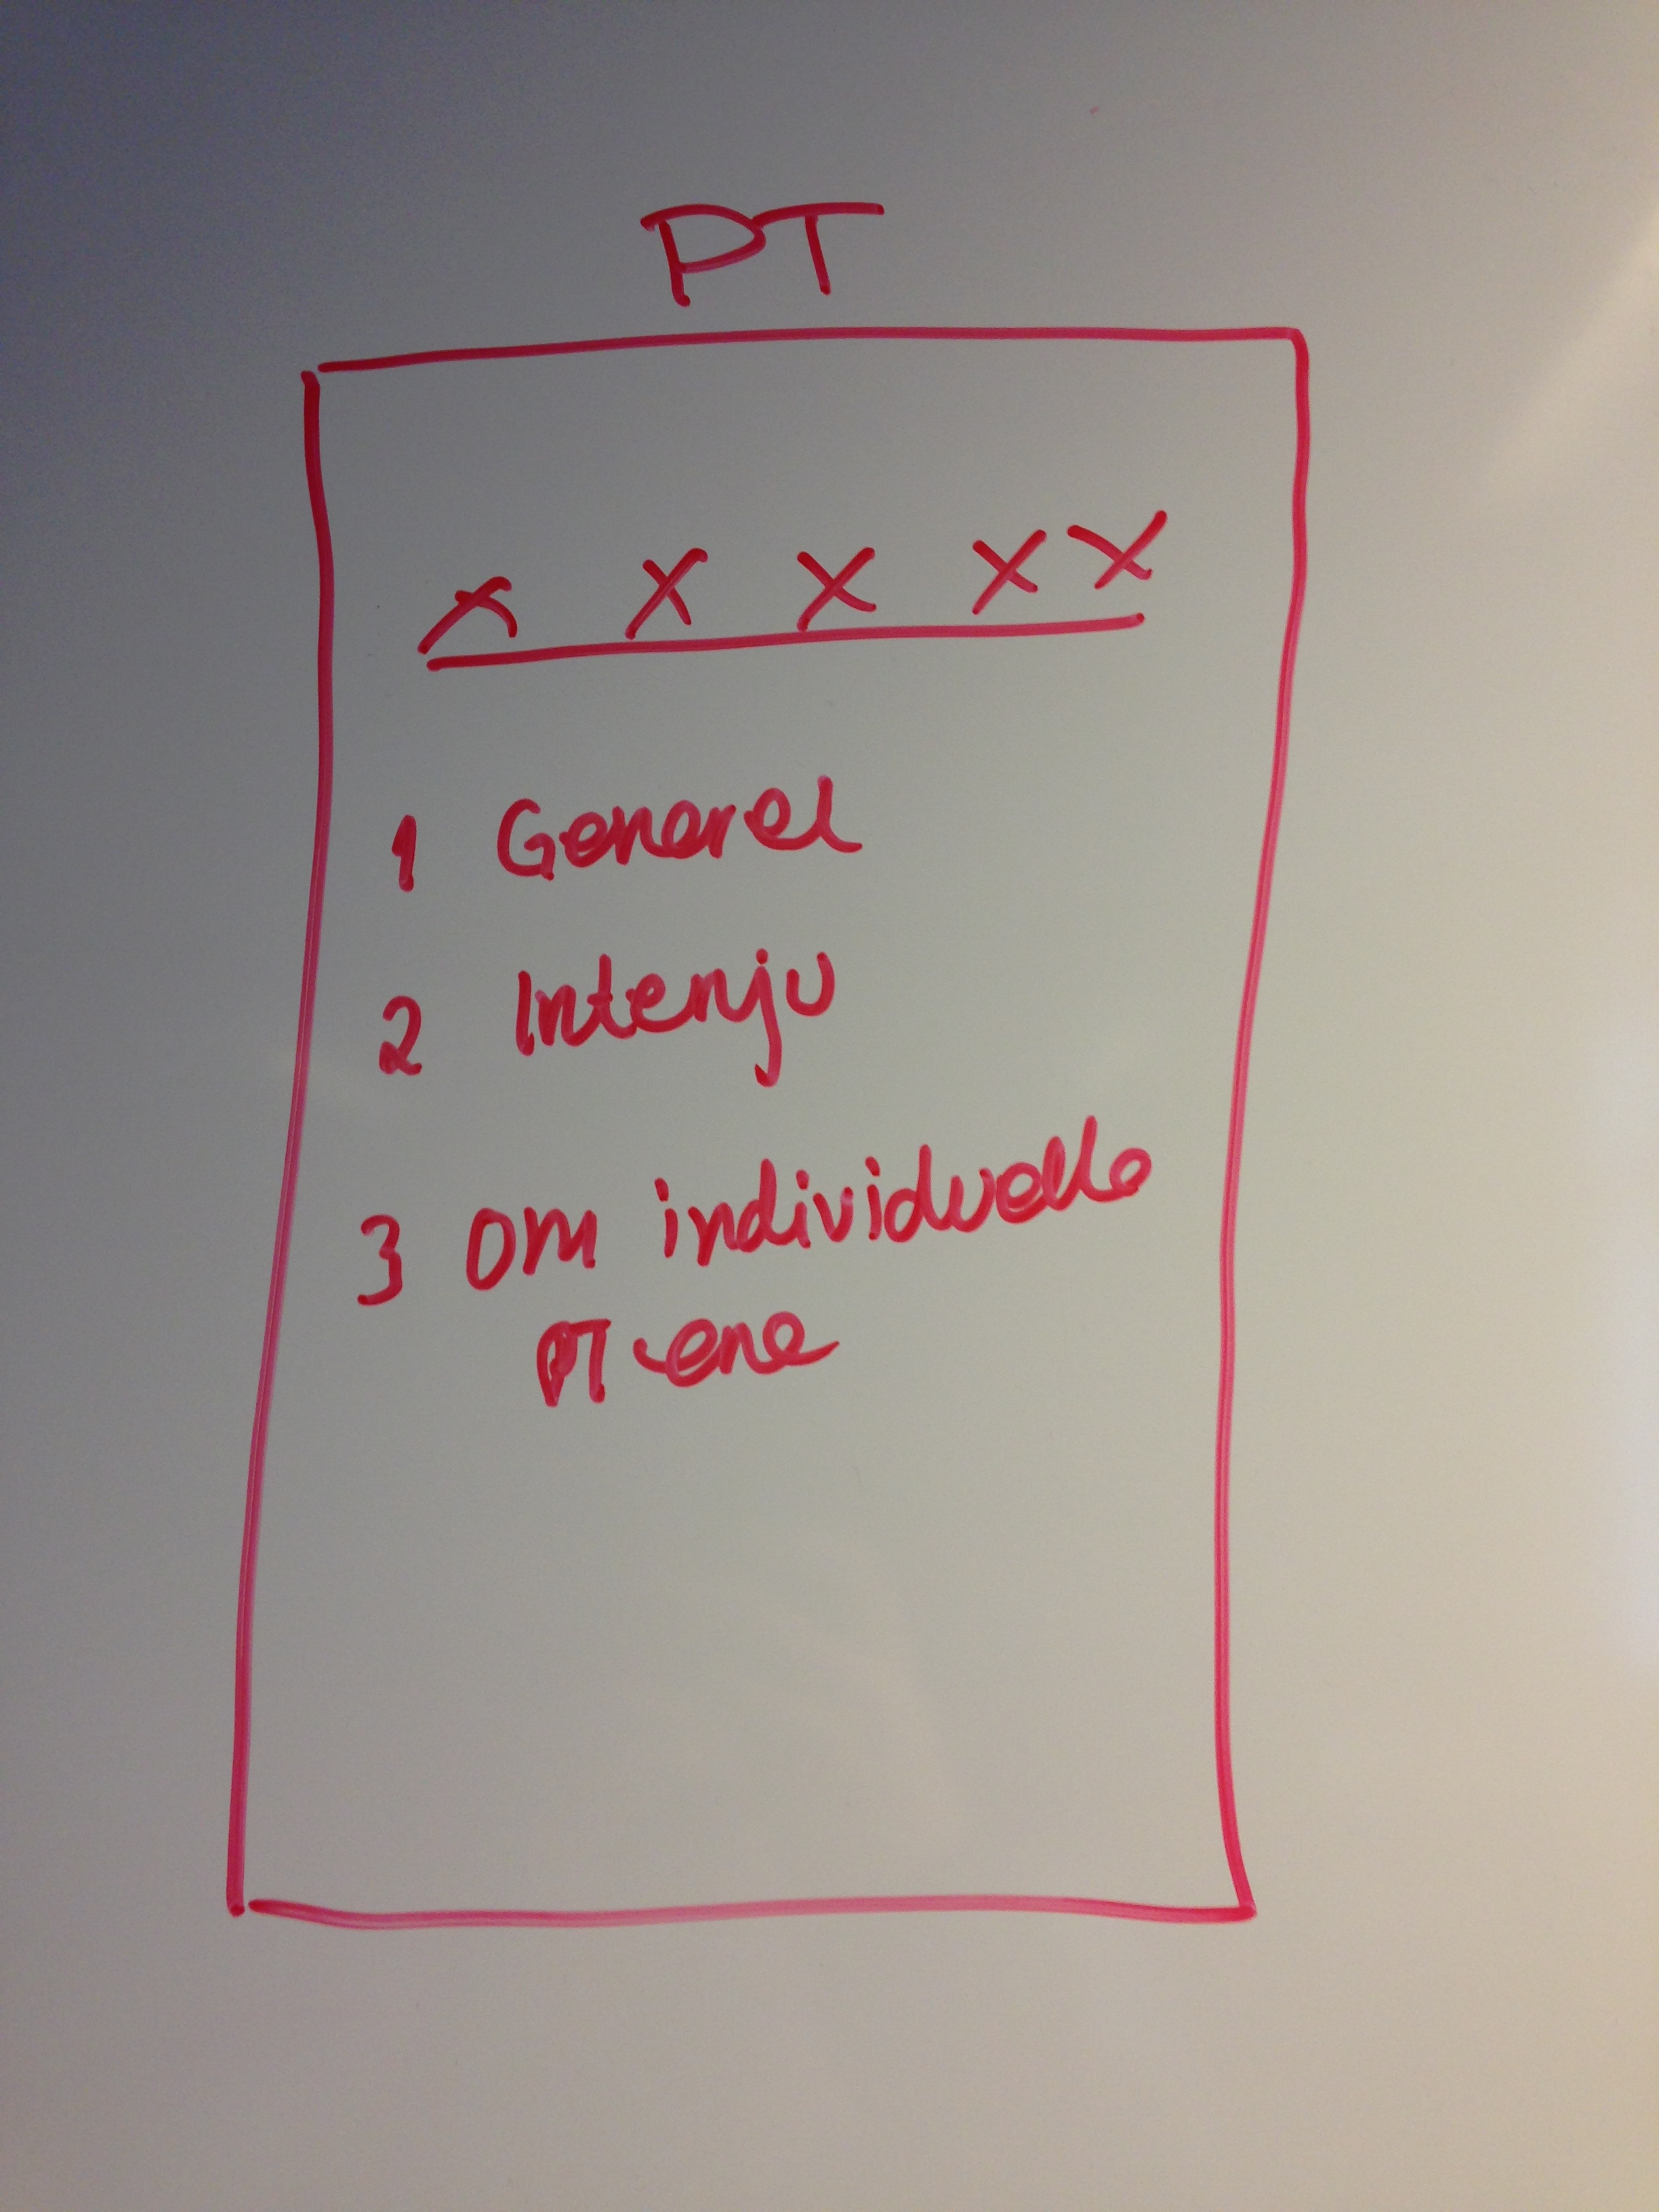 PT
X X X X X
1 Generel
2 Intervju
3 Om individuelle
PT-ene